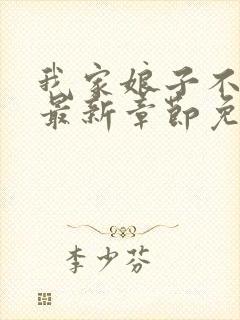 我家娘子不
最新章节免
李少芬